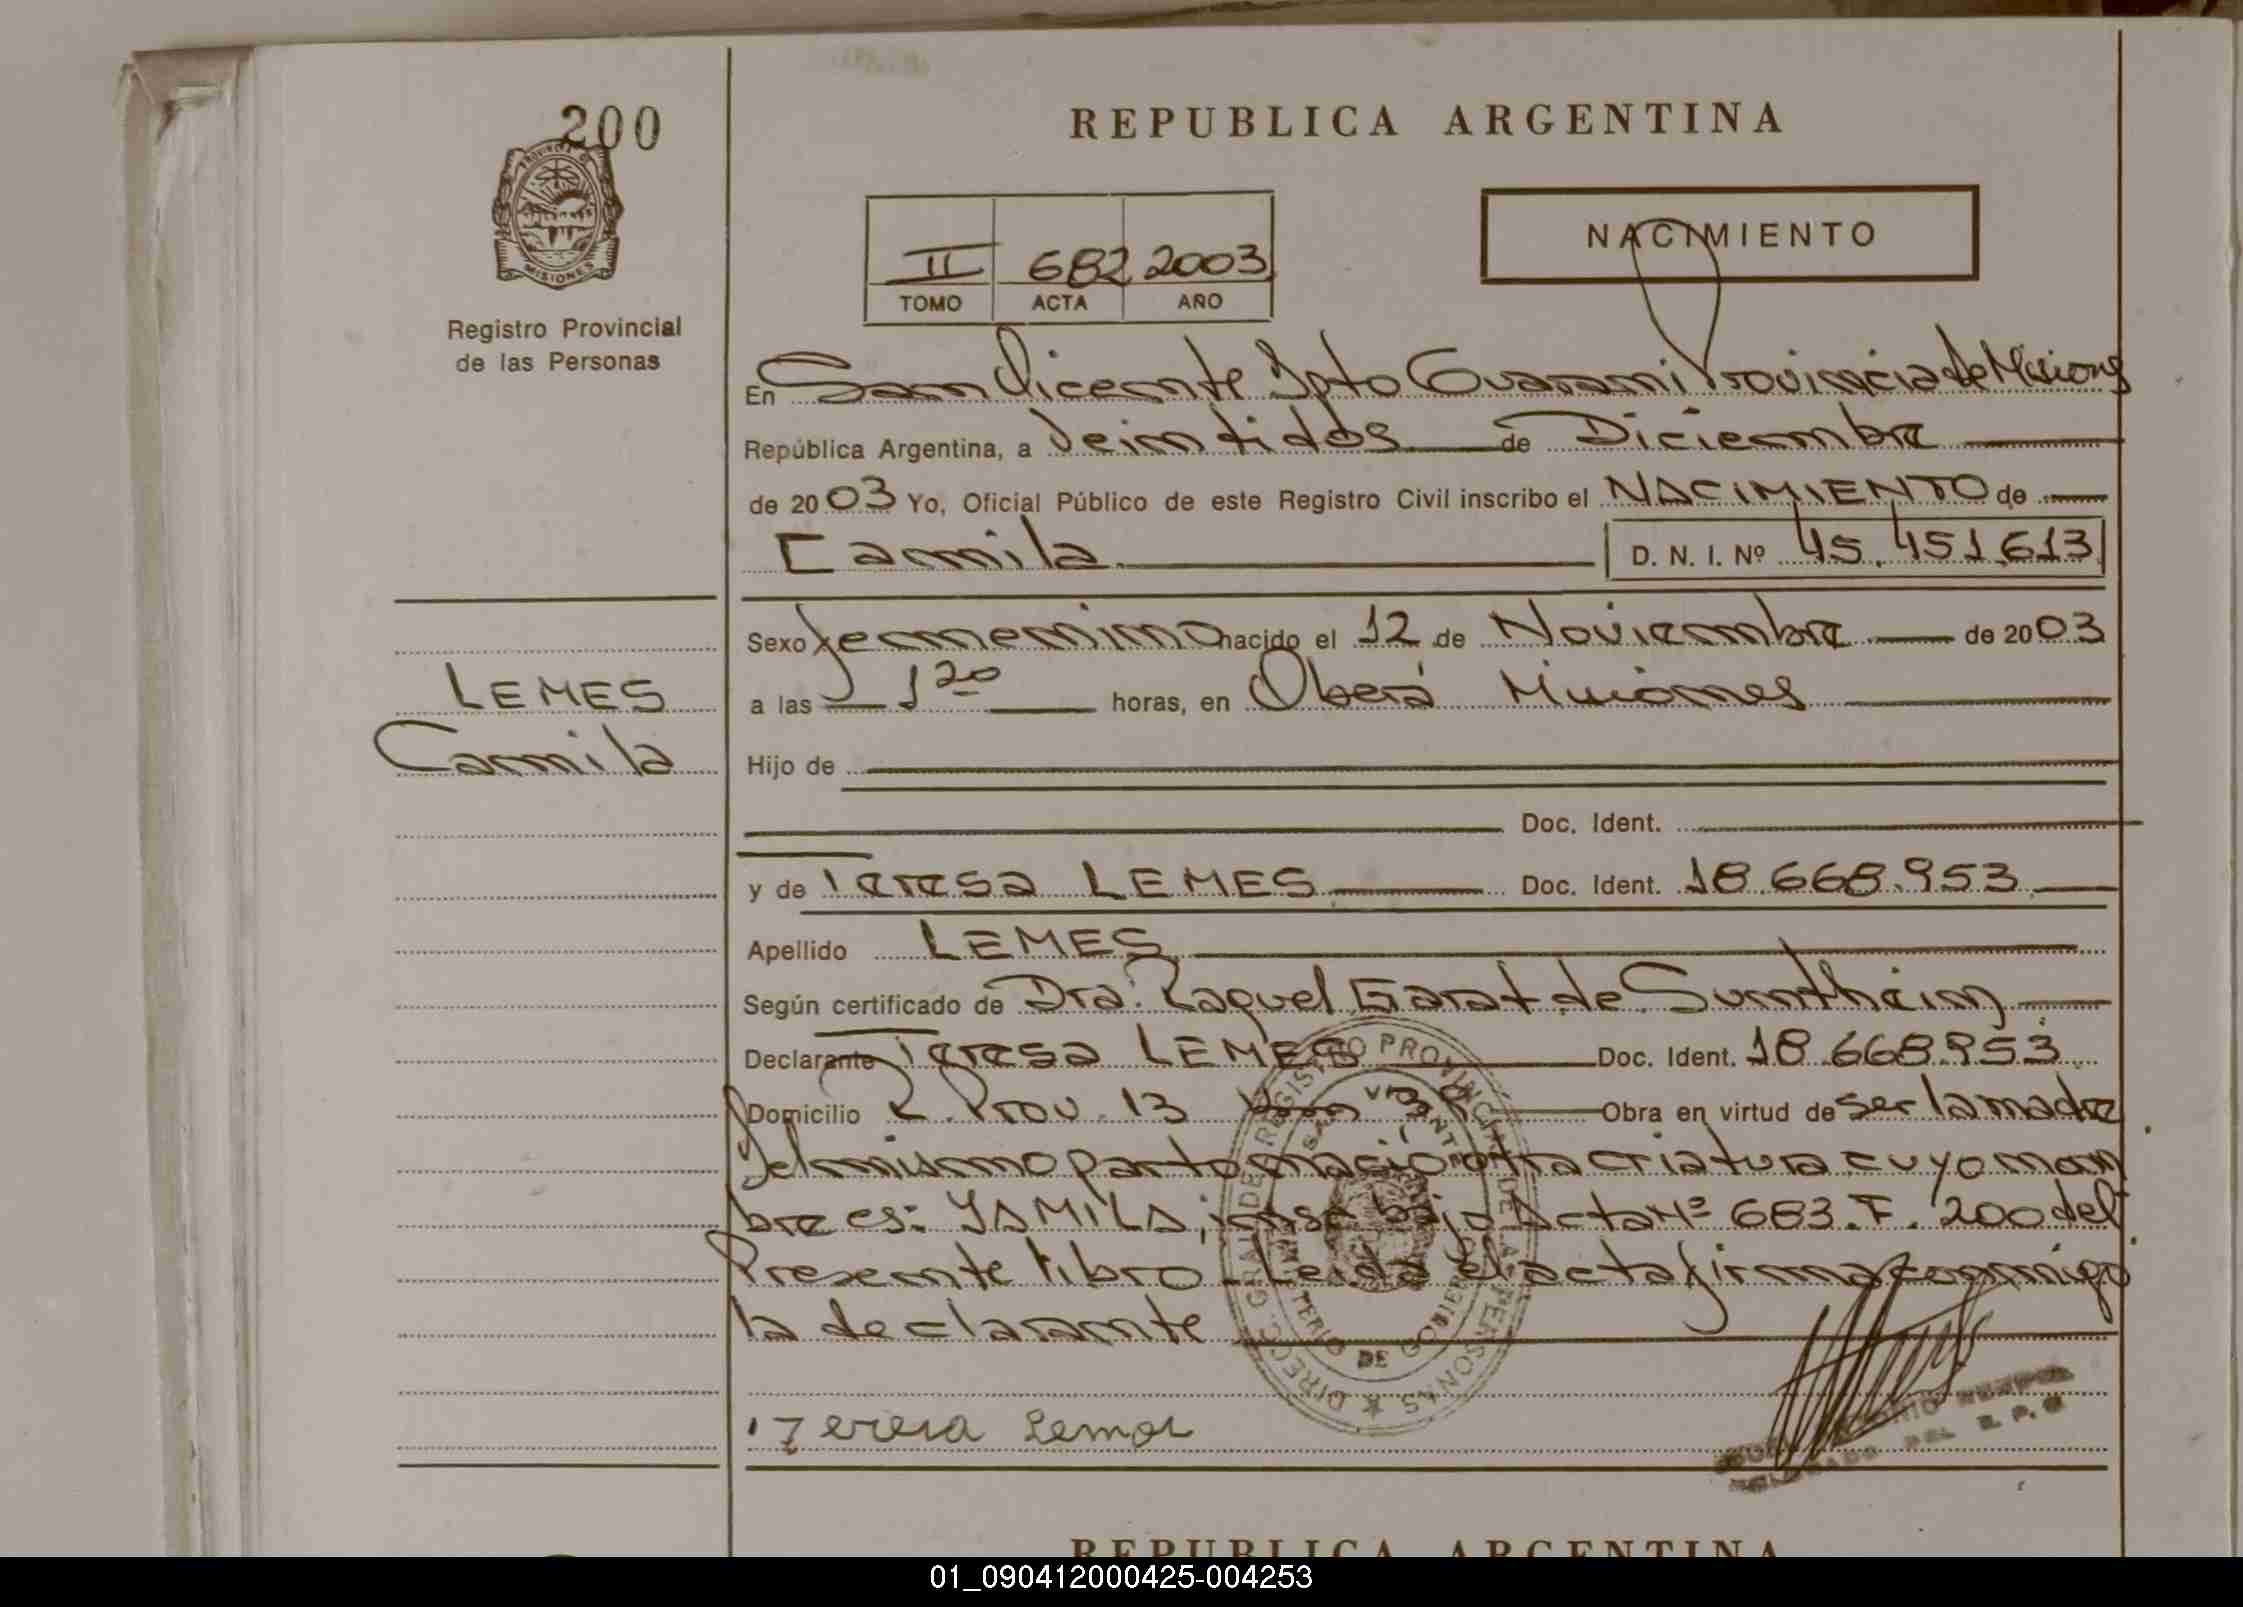 200
REPUBLICA ARGENTINA
PROVINCIA DE
MISIONES
NACIMIENTO
II 682 2003
TOMO ACTA AÑO
Registro Provincial
de las Personas
En San Vicente Dpto Guarani Provincia de Misiones
República Argentina, a Veintidos de Diciembre
de 2003 Yo, Oficial Público de este Registro Civil inscribo el NACIMIENTO de
Camila D. N. I. Nº 45.451.613
Sexo femenino nacido el 12 de Noviembre de 2003
LEMES
a las 1 20 horas, en Oberá Misiones
Camila
Hijo de
Doc. Ident.
y de Teresa LEMES Doc. Ident. 18.668.953
Apellido LEMES
Según certificado de Dra. Raquel Garat de Sumtheim
Declarante Teresa LEMES Doc. Ident. 18.668.953
Domicilio R. Prov. 13 Obra en virtud de ser la madre
Del mismo parto nació otra criatura cuyo nom
bre es: YAMILA, insc bajo Acta Nº 683.F. 200 del
Presente libro - Leida el acta firma conmigo
la declarante
DIRECC. GRAL DE REGISTRO PROVINCIAL DE LAS PERSONAS
MINISTERIO DE GOBIERNO
SAN VICENTE
Teresa Lemes
DELEGADO DEL R. P. P
REPUBLICA ARGENTINA
01_090412000425-004253